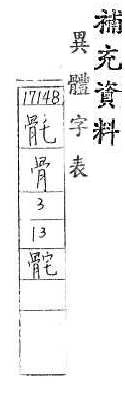 補充資料
異體字表
17148
骨
3
13